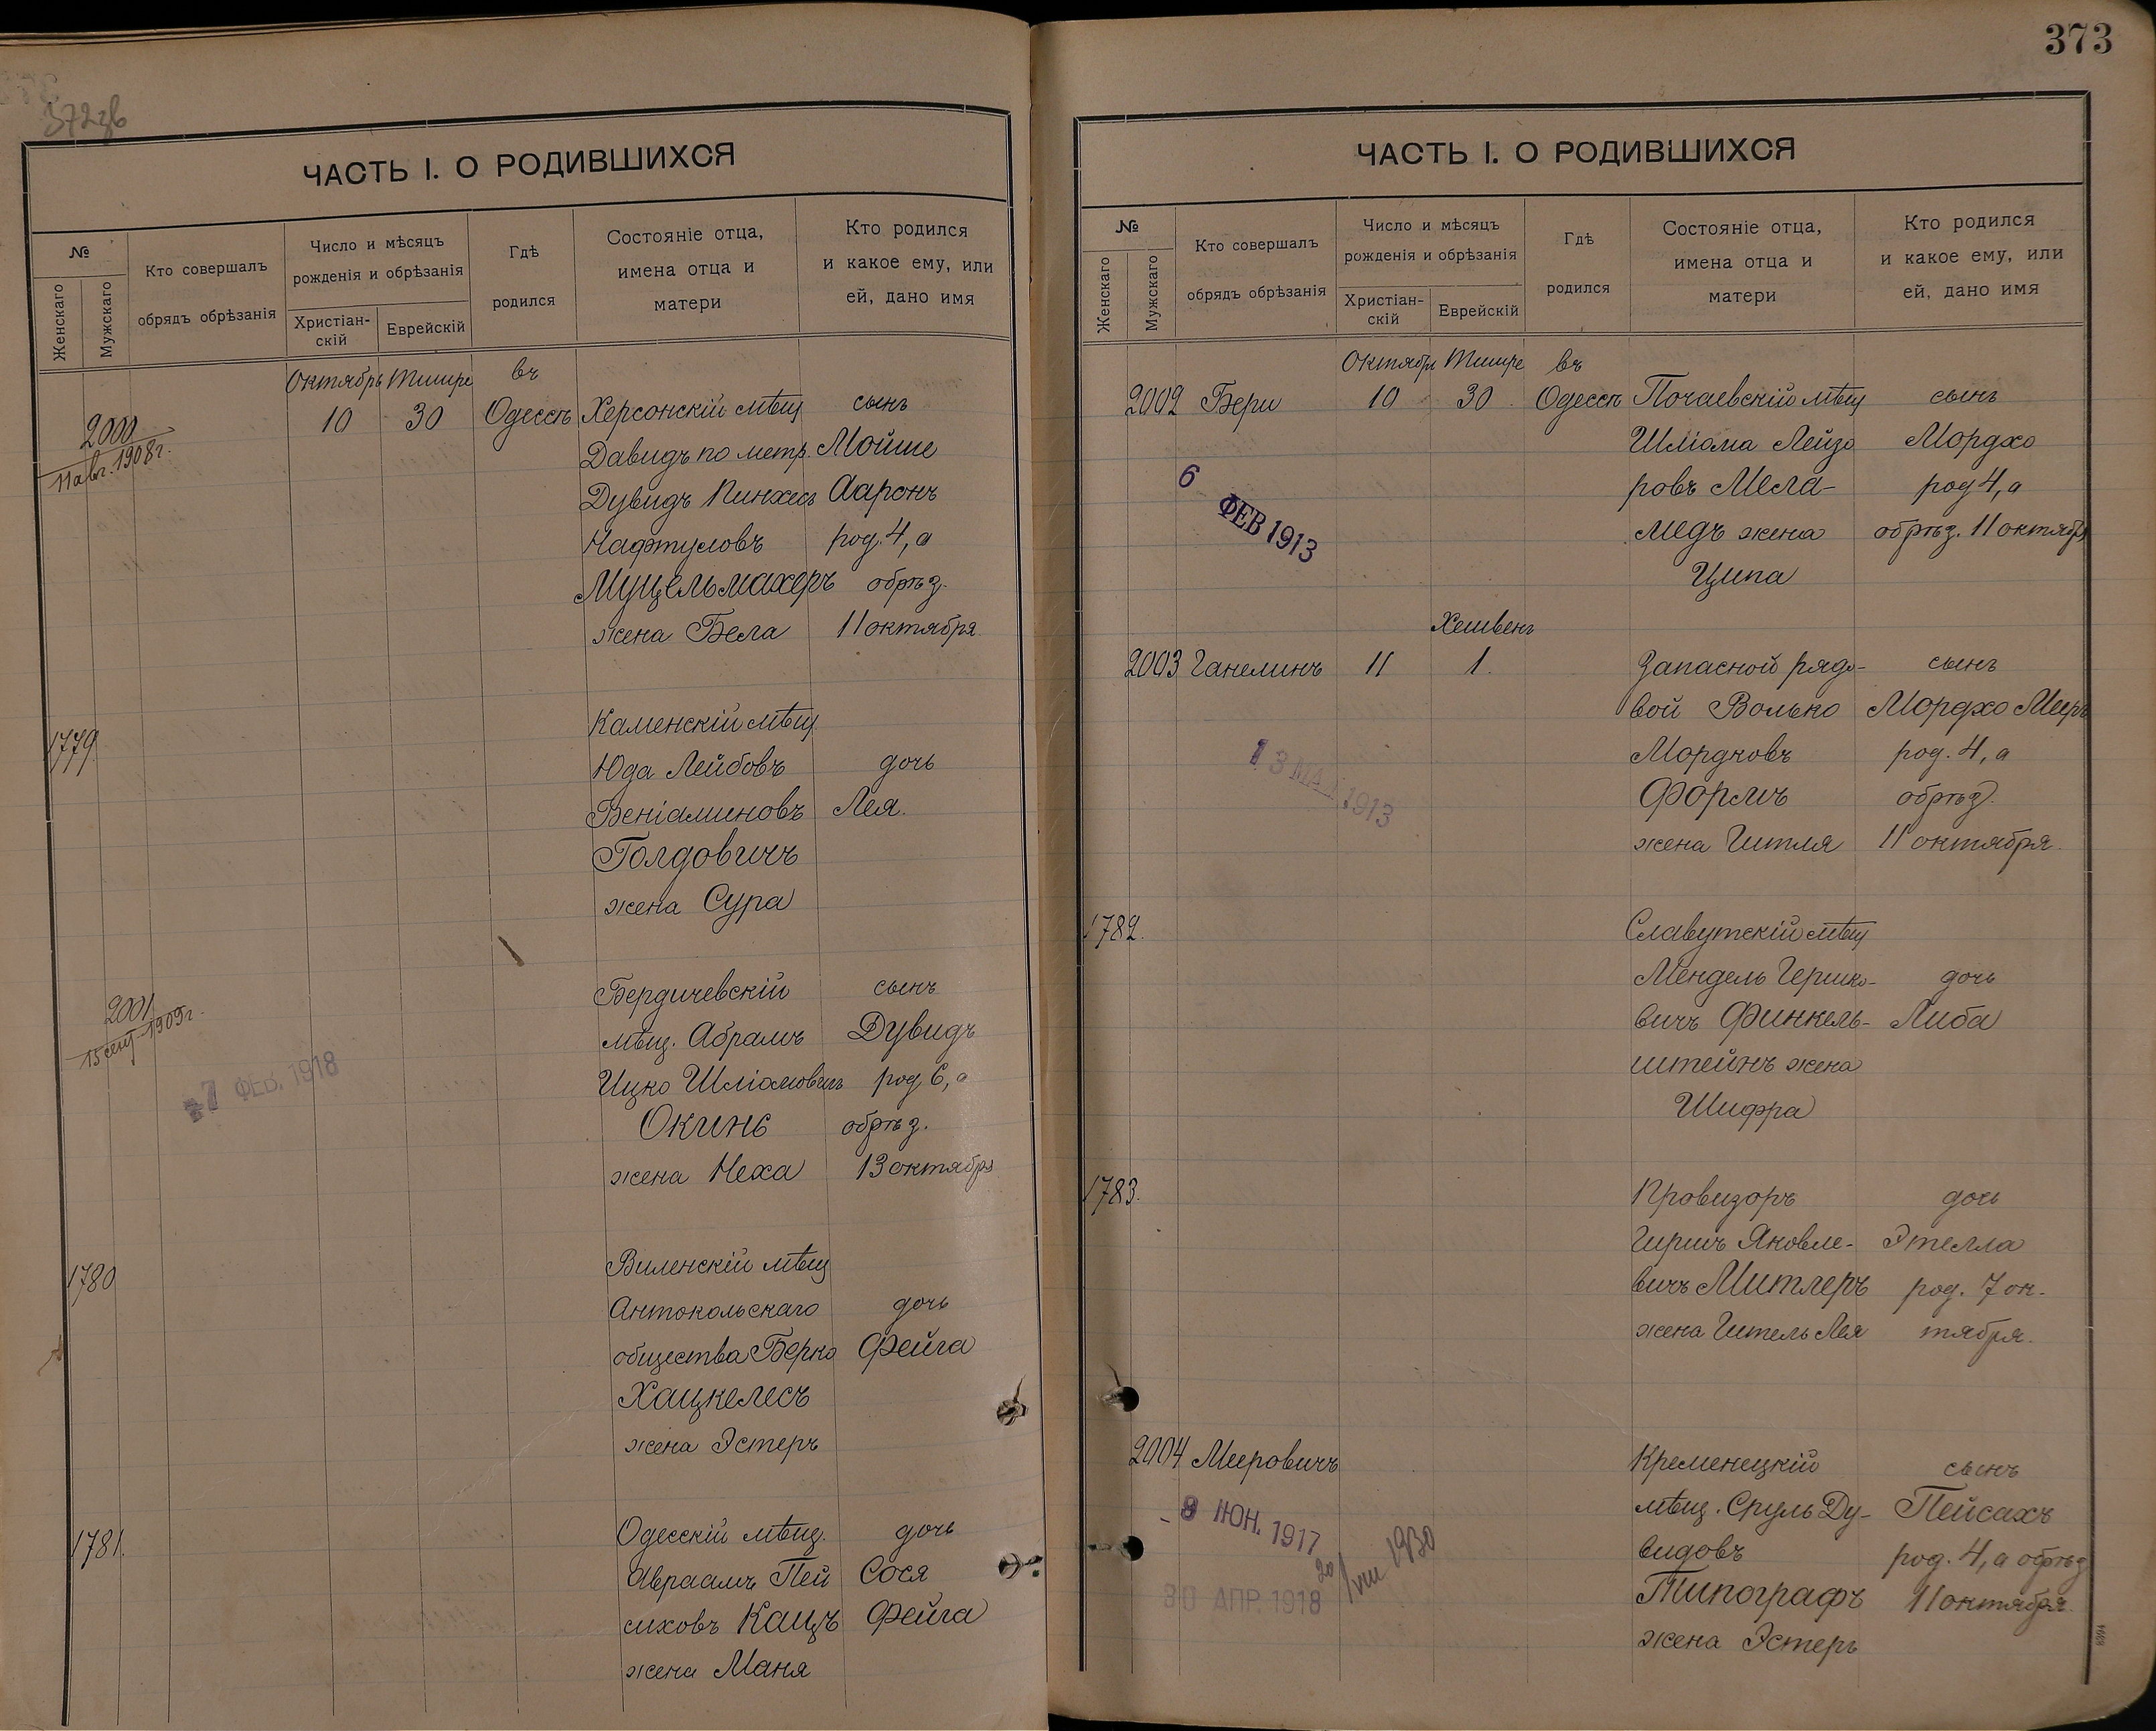 372 зв
ЧАСТЬ I. О РОДИВШИХСЯ
№
Женскаго
Мужскаго
Кто совершалъ
обрядъ обрѣзанія
Число и мѣсяцъ
рожденія и обрѣзанія
Христіан-
скій
Еврейскій
Гдѣ
родился
Состояніе отца,
имена отца и
матери
Кто родился
и какое ему, или
ей, дано имя
Октябрь Тишре въ
2000 10 30 Одессѣ Херсонскій мѣщ сынъ
11 авг. 1908 г. Давидъ по метр. Мойше
Дувидъ Пинхесъ Ааронъ
Нафтуловъ род. 4, а
Муцельмахеръ обрѣз.
жена Бела 11 октября
1779. Каменскій мѣщ.
Юда Лейбовъ дочь
Веніаминовъ Лея.
Голдовичъ
жена Сура
2001 Бердичевскій сынъ
15 сент. 1909 г. мѣщ. Абрамъ Дувидъ
7 ФЕВ. 1918
Ицко Шліомовичъ род 6, а
Окинь обрѣз.
жена Неха 13 октября
1780 Виленскій мѣщ
Антокольскаго дочь
общества Берко Фейга
Хацкелесъ
жена Эстеръ
1781. Одесскій мѣщ. дочь
Авраамъ Пей Сося
сиховъ Кацъ Фейга
жена Маня
373
ЧАСТЬ I. О РОДИВШИХСЯ
№
Женскаго
Мужскаго
Кто совершалъ
обрядъ обрѣзанія
Число и мѣсяцъ
рожденія и обрѣзанія
Христіан-
скій
Еврейскій
Гдѣ
родился
Состояніе отца,
имена отца и
матери
Кто родился
и какое ему, или
ей, дано имя
Октябрь Тишре въ
2002 Бери 10 30 Одессѣ Почаевскій мѣщ сынъ
Шліома Лейзо Мордхо
6 ФЕВ 1913
ровъ Мела- род 4, а
медъ жена обрѣз. 11 октября
Ципа
Хешвенъ
2003 Ганелинъ 11 1. Запасной рядо- сынъ
вой Волько Мордхо Мееръ
Мордковъ род. 4, а
13 МАЯ 1913
Формъ обрѣз.
жена Гитля 11 октября.
1782. Славутскій мѣщ
Мендель Гершко- дочь
вичъ Финкель- Либа
штейнъ жена
Шифра
1783. Провизоръ дочь
Гиршъ Яковле- Этелла
вичъ Митлеръ род. 7 ок-
жена Гитель Лея тября.
2004 Мееровичъ Кременецкій сынъ
мѣщ. Сруль Ду- Пейсахъ
8 ІЮН. 1917
видовъ род. 4, а обрѣз
20/VIII 1930
30 АПР. 1918
Типографъ 11 октября.
жена Эстеръ